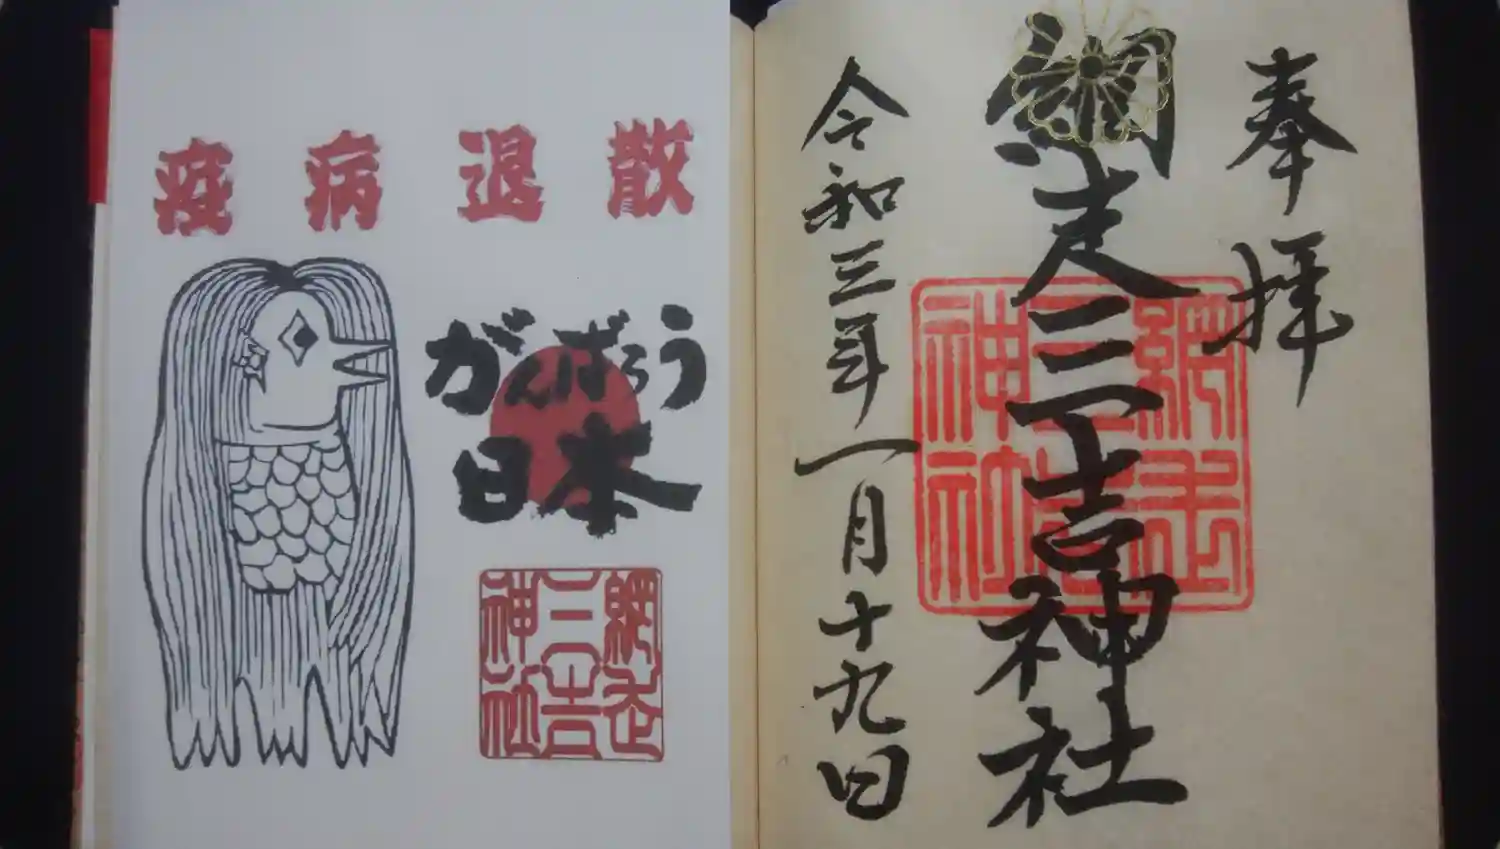 疫病退散
がんばろう
日本
網走
三吉
神社
奉拝
網走三吉神社
網走
三吉
神社
令和三年一月十九日